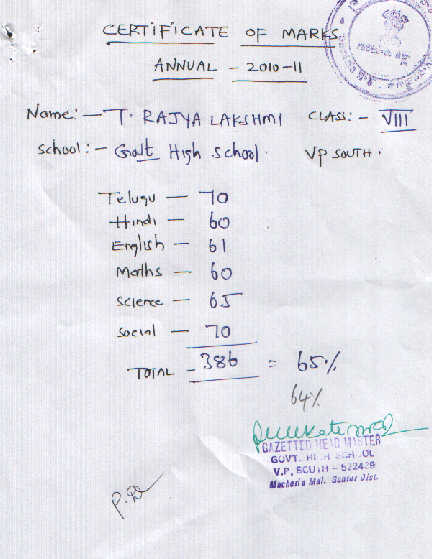 CERTIFICATE OF MARKS
ANNUAL - 2010-11
Name:- T. RAJYA LAKSHMI CLASS:- VIII
School:- Govt High School. VP SOUTH.
Telugu - 70
Hindi - 60
English - 61
Maths - 60
Science - 65
Social - 70
TOTAL - 386 = 65%
64%
GAZETTED HEAD MASTER
GOVT. HIGH SCHOOL
V.P. SOUTH - 522429
Macherla Mdl. Guntur Dist.